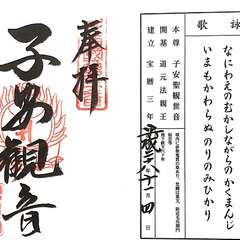 詠歌
なにわえのむかしながらのかくまんじ
いまもかわらぬのりのみひかり
本尊 子安聖観世音
開基 道元法親王
建立 宝暦三年
平成二八年十一月四日
奉拝
子安観音